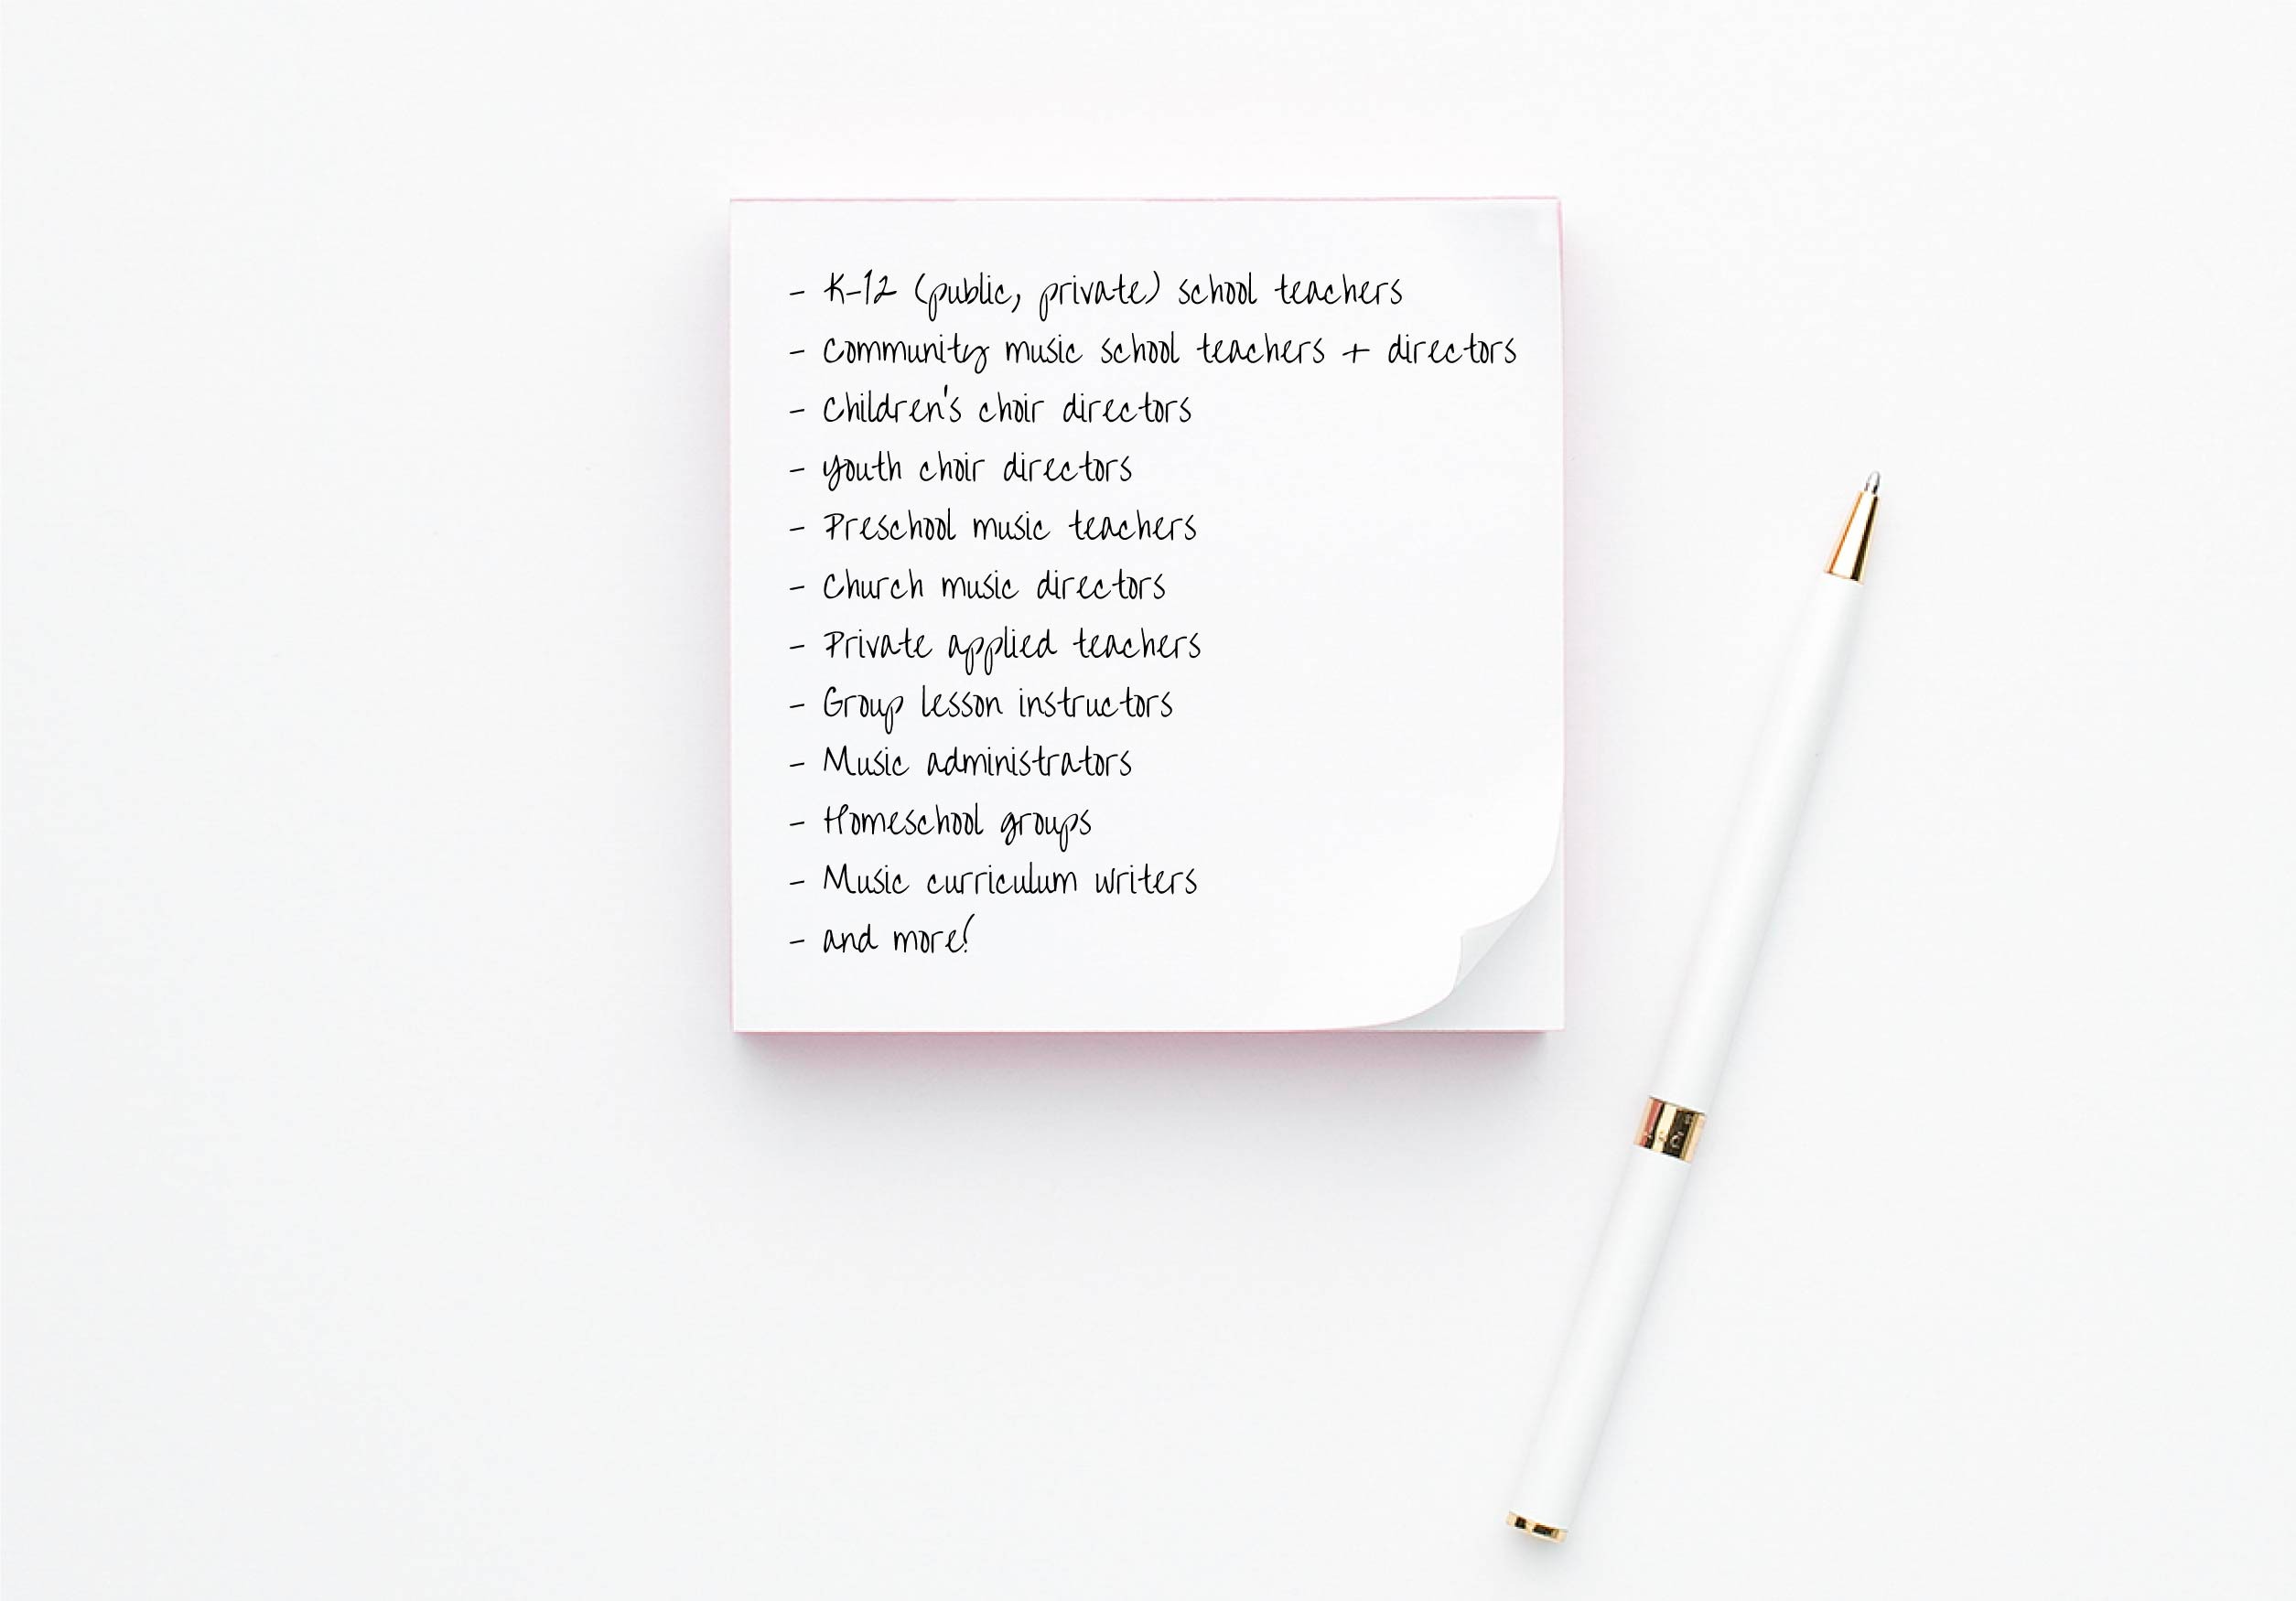 - K-12 (public, private) school teachers
- Community music school teachers + directors
- Children's choir directors
- Youth choir directors
- Preschool music teachers
- Church music directors
- Private applied teachers
- Group lesson instructors
- Music administrators
- Homeschool groups
- Music curriculum writers
- and more!